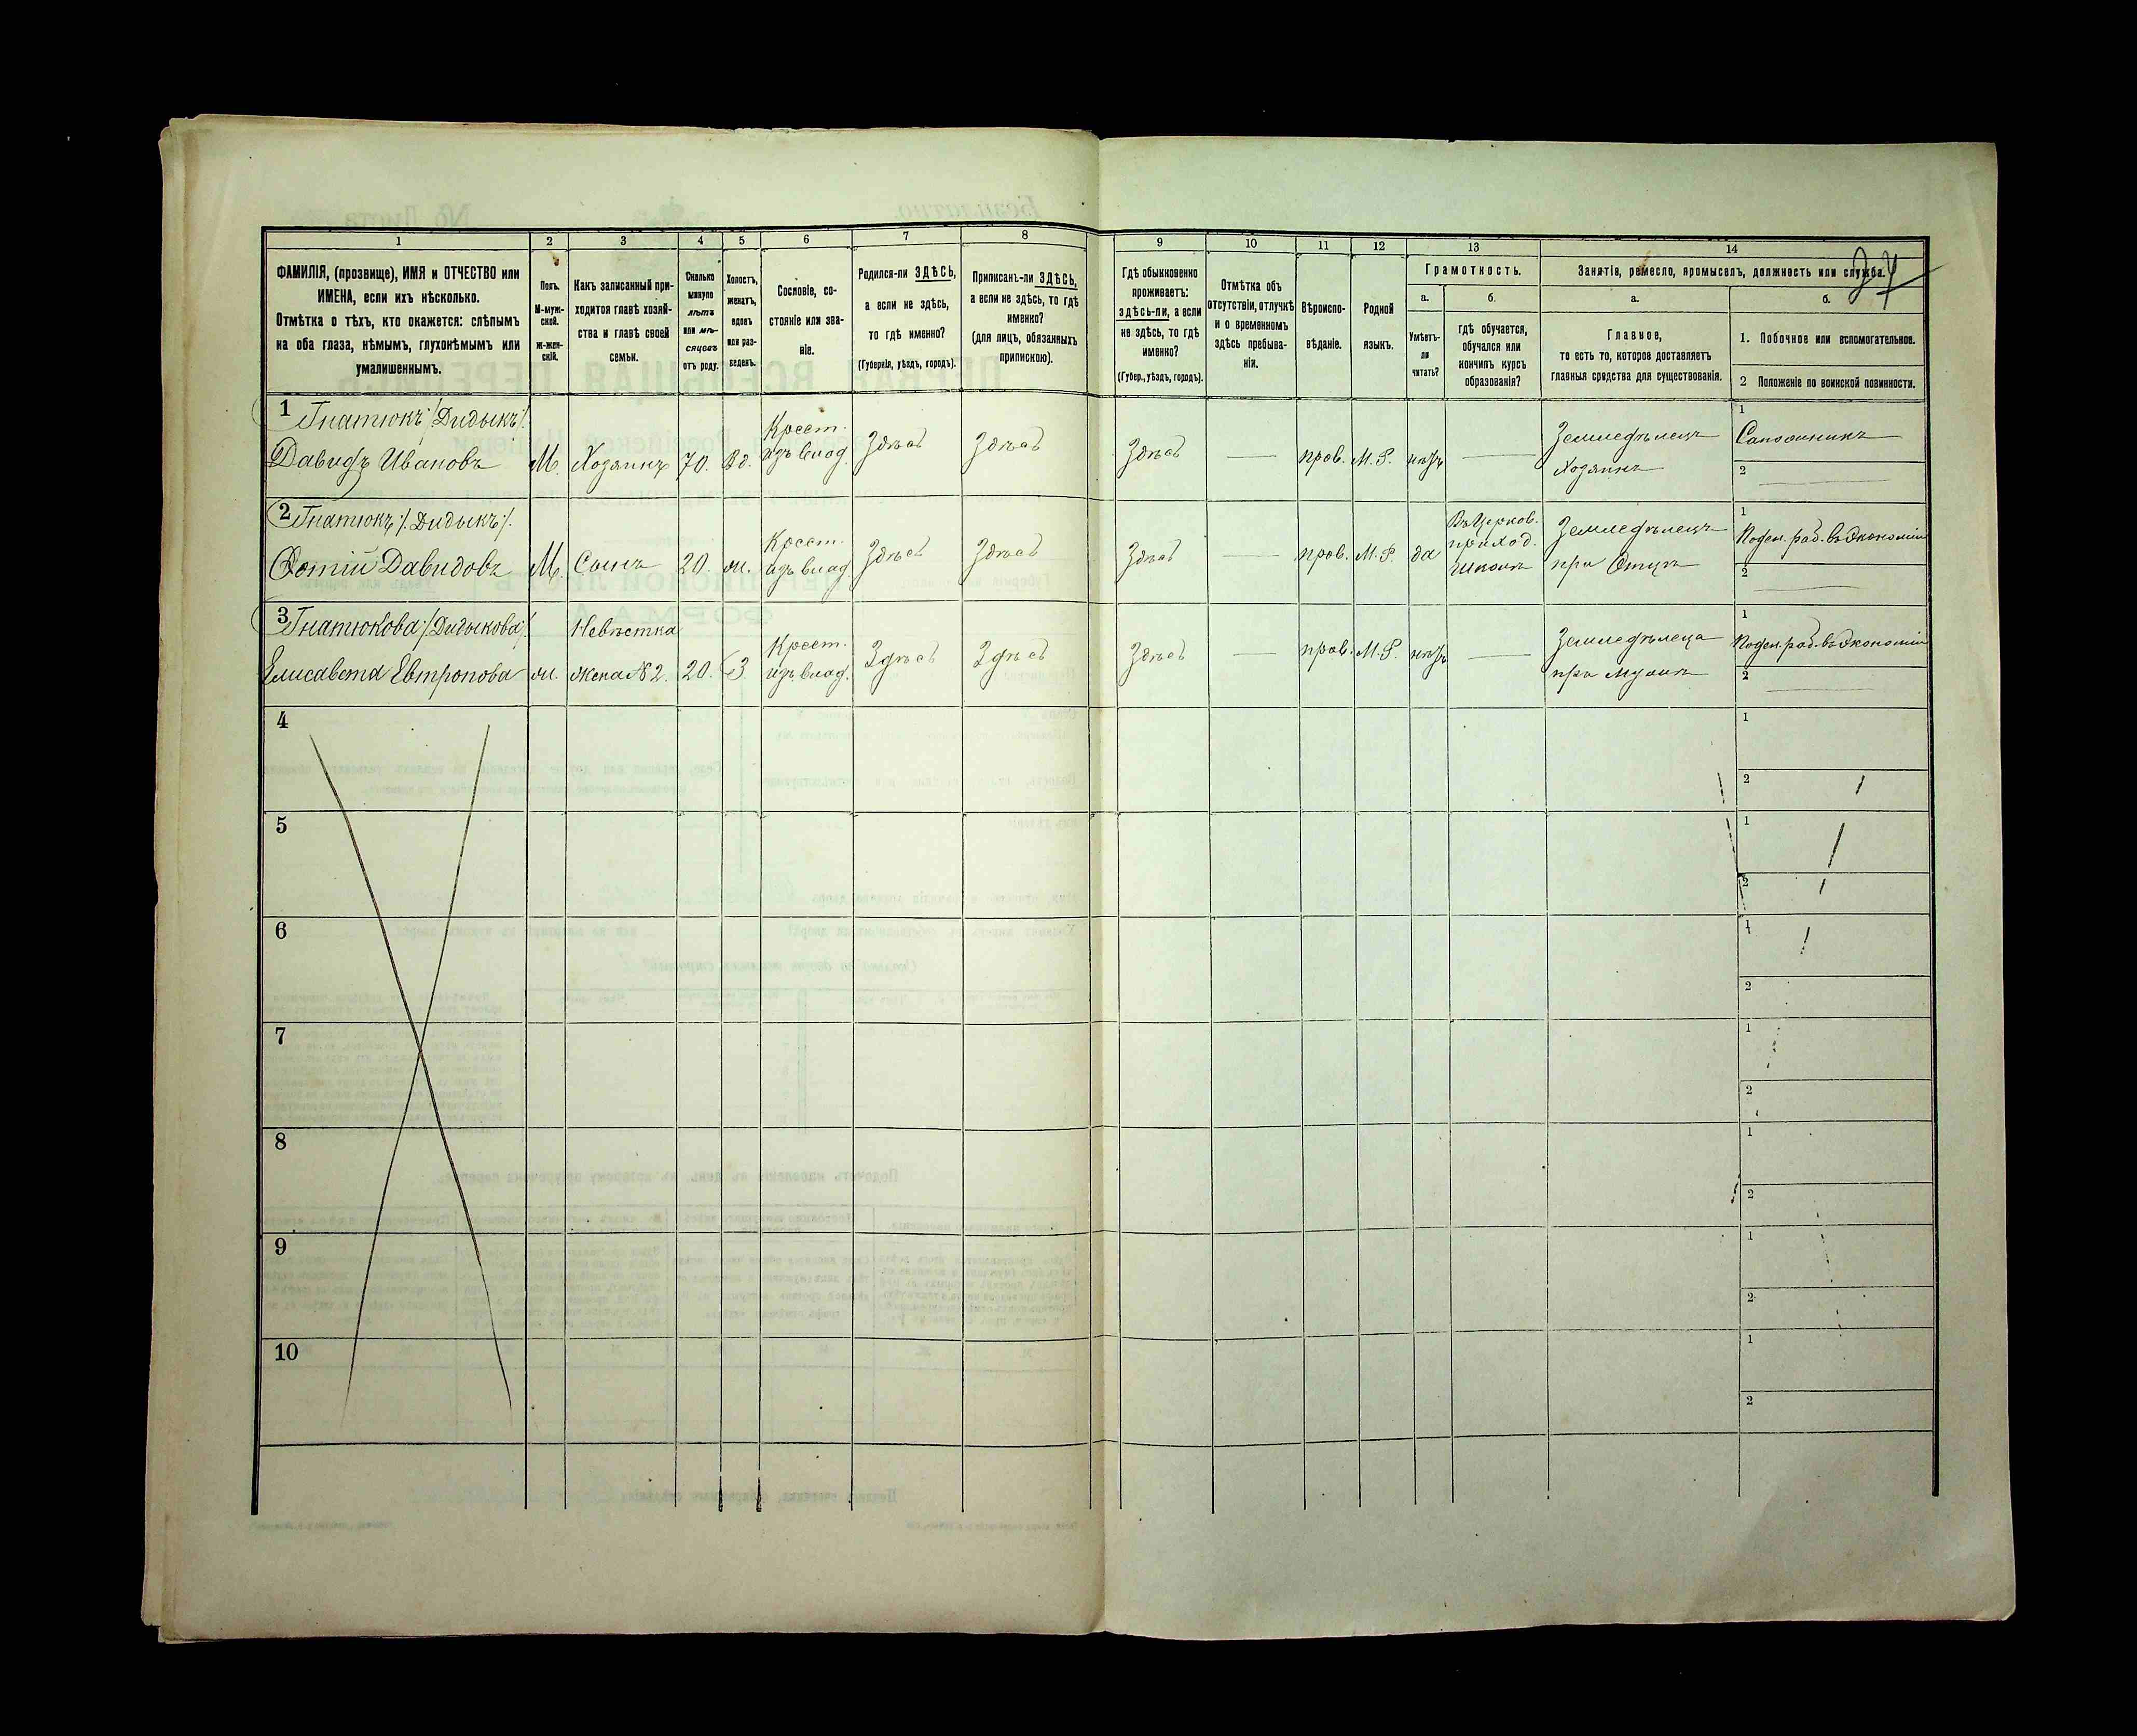 1
2
3
4
5
6
7
8
9
10
11
12
13
14
ФАМИЛІЯ, (прозвище), ИМЯ и ОТЧЕСТВО или
ИМЕНА, если ихъ нѣсколько.
Отмѣтка о тѣхъ, кто окажется: слѣпымъ
на оба глаза, нѣмымъ, глухонѣмымъ или
умалишеннымъ.
Полъ.
М-муж-
ской.
ж-жен-
скій.
Какъ записанный при-
ходится главѣ хозяй-
ства и главѣ своей
семьи.
Сколько
минуло
лѣтъ
или мѣ-
сяцевъ
отъ роду.
Холостъ,
женатъ,
вдовъ
или раз-
веденъ.
Сословіе, со-
стояніе или зва-
ніе.
Родился-ли ЗДѢСЬ,
а если не здѣсь,
то гдѣ именно?
(Губернія, уѣздъ, городъ).
Приписанъ-ли ЗДѢСЬ,
а если не здѣсь, то гдѣ
именно?
(для лицъ, обязанныхъ
припискою).
Гдѣ обыкновенно
проживаетъ:
здѣсь-ли, а если
не здѣсь, то гдѣ
именно?
(Губер., уѣздъ, городъ).
Отмѣтка объ
отсутствіи, отлучкѣ
и о временномъ
здѣсь пребыва-
ніи.
Вѣроиспо-
вѣданіе.
Родной
языкъ.
Грамотность.
а.
Умѣетъ-
ли
читать?
б.
гдѣ обучается,
обучался или
кончилъ курсъ
образованія?
Занятіе, ремесло, промыселъ, должность или служба.
а.
Главное,
то есть то, которое доставляетъ
главныя средства для существованія.
б.
1. Побочное или вспомогательное.
2 Положеніе по воинской повинности.
1 Гнатюкъ /Дидыкъ/.
Давидъ Ивановъ
М.
Хозяинъ
70.
Вд.
Крест.
изъ влад.
Здѣсь
Здѣсь
Здѣсь
—
прав.
М. Р.
нѣтъ
—
Земледѣлецъ
Хозяинъ
1
Сапожникъ
2
2 Гнатюкъ /. Дидыкъ /.
Фотій Давидовъ
М.
Сынъ
20.
ж.
Крест.
изъ влад
Здѣсь
Здѣсь
Здѣсь
—
прав.
М. Р.
да
Въ Церков.
приход.
Школѣ
Земледѣлецъ
при Отцѣ
1
Поден. раб. въ Экономіи
2
3 Гнатюкова /Дидыкова/.
Елисавета Евтропова
ж.
Невѣстка
жена №2.
20.
З.
Крест.
изъ влад.
Здѣсь
Здѣсь
Здѣсь
—
прав.
М. Р.
нѣтъ
—
Земледѣлеца
при Мужѣ
1
Поден. раб. въ Экономіи
2
4
1
2
5
1
2
6
1
2
7
1
2
8
1
2
9
1
2
10
1
2